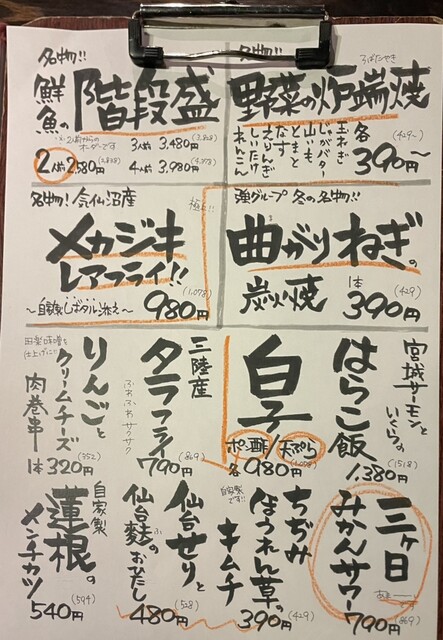 名物!!
鮮魚の階段盛
※2人前からのオーダーです
2人前 2,580円 (2,838)
3人前 3,480円 (3,828)
4人前 3,980円 (4,378)
名物!!
ろばたやき
野菜の炉端焼
玉ねぎ
じゃがバター
山いも
とまと
なす
えりんぎ
しいたけ
れんこん
各390円〜 (429〜)
名物!気仙沼産
極上!!
メカジキ
レアフライ!!
〜自家製しばタル添え〜
980円 (1,078)
強グループ 冬の名物!!
曲がりねぎの
炭火焼
1本 390円 (429)
宮城サーモンと
いくらの
はらこ飯
1,380円 (1518)
白子
ポン酢/天ぷら
各980円 (1,078)
三陸産
タラフライ
ふわふわサクサク
790円 (869)
りんごと
クリームチーズ
肉巻串
1本320円 (352)
三ヶ日
みかんサワー
790円 (869)
ちぢみ
ほうれん草の
キムチ
自家製です!!
390円 (429)
仙台せりと
仙台麩のおひたし
480円 (528)
自家製
蓮根の
メンチカツ
540円 (594)